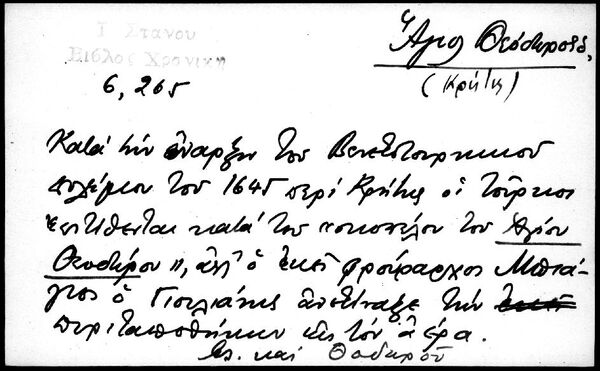 Γ Στανου
Βιβλος Χρονικη
6, 265
Ἅγιος Θεόδωρος,
(Κρήτη)
Κατά τήν ἔναρξιν τοῦ Βενετοτουρκικοῦ
πολέμου τοῦ 1645 περί Κρήτης οἱ Τοῦρκοι
ἐπιτίθενται κατά τοῦ "σκοπέλου τοῦ Ἁγίου
Θεοδώρου", ἀλλ' ὁ ἐκεῖ φρούραρχος Μπιά-
γιος ὁ Γιουλιάνης ἀνετίναξε τήν
πυριταποθήκην εἰς τόν ἀέρα.
καί Θοδωροῦ